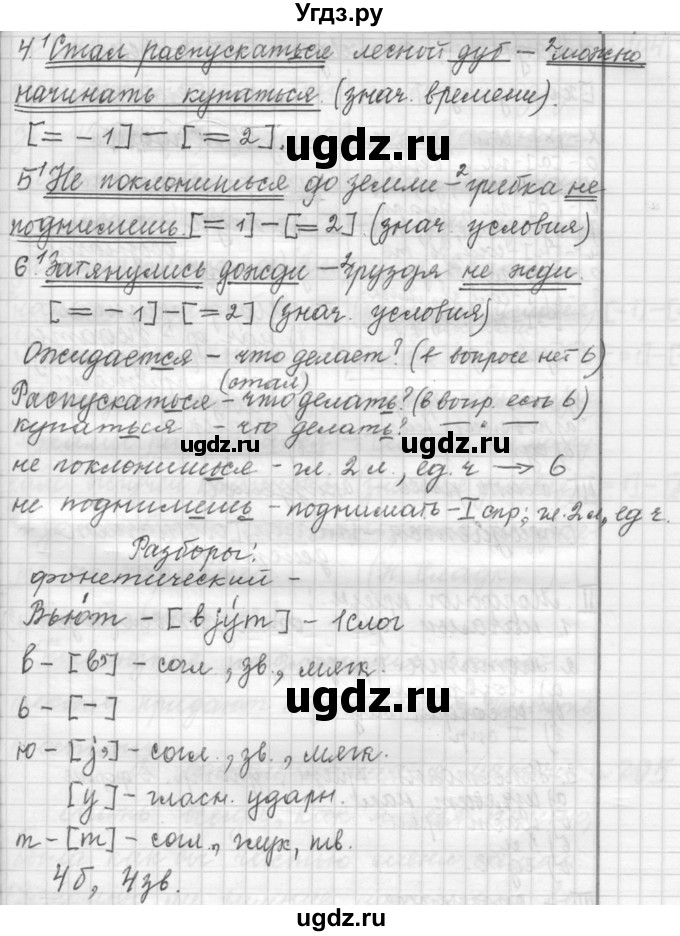 Угдз.ру
4.¹ Стал распускаться лесной дуб – ²можно
начинать купаться. (знач. времени).
[= - 1] — [= 2].
5.¹ Не поклонишься до земли – ²грибка не
поднимешь. [= 1] – [= 2] (знач. условия)
6.¹ Затянулись дожди – ²груздя не жди.
[= - 1] – [= 2] (знач. условия)
Ожидается – что делает? (в вопросе нет ь)
(стал)
Распускаться – что делать? (в вопр. есть ь)
купаться – что делать? — " —
не поклонишься – гл. 2 л., ед. ч → ь
не поднимешь – поднимать – I спр; гл. 2 л, ед ч.
Разборы:
фонетический –
Вью́т – [в jу́т] – 1 слог
в – [в,] – согл., зв., мягк.
ь – [–]
ю – [j,] – согл., зв., мягк.
[у] – гласн. ударн.
т – [т] – согл., глух, тв.
4 б, 4 зв.
ugdz.ru
ugdz.ru
ugdz.ru
ugdz.ru
ugdz.ru
ugdz.ru
ugdz.ru
ugdz.ru
ugdz.ru